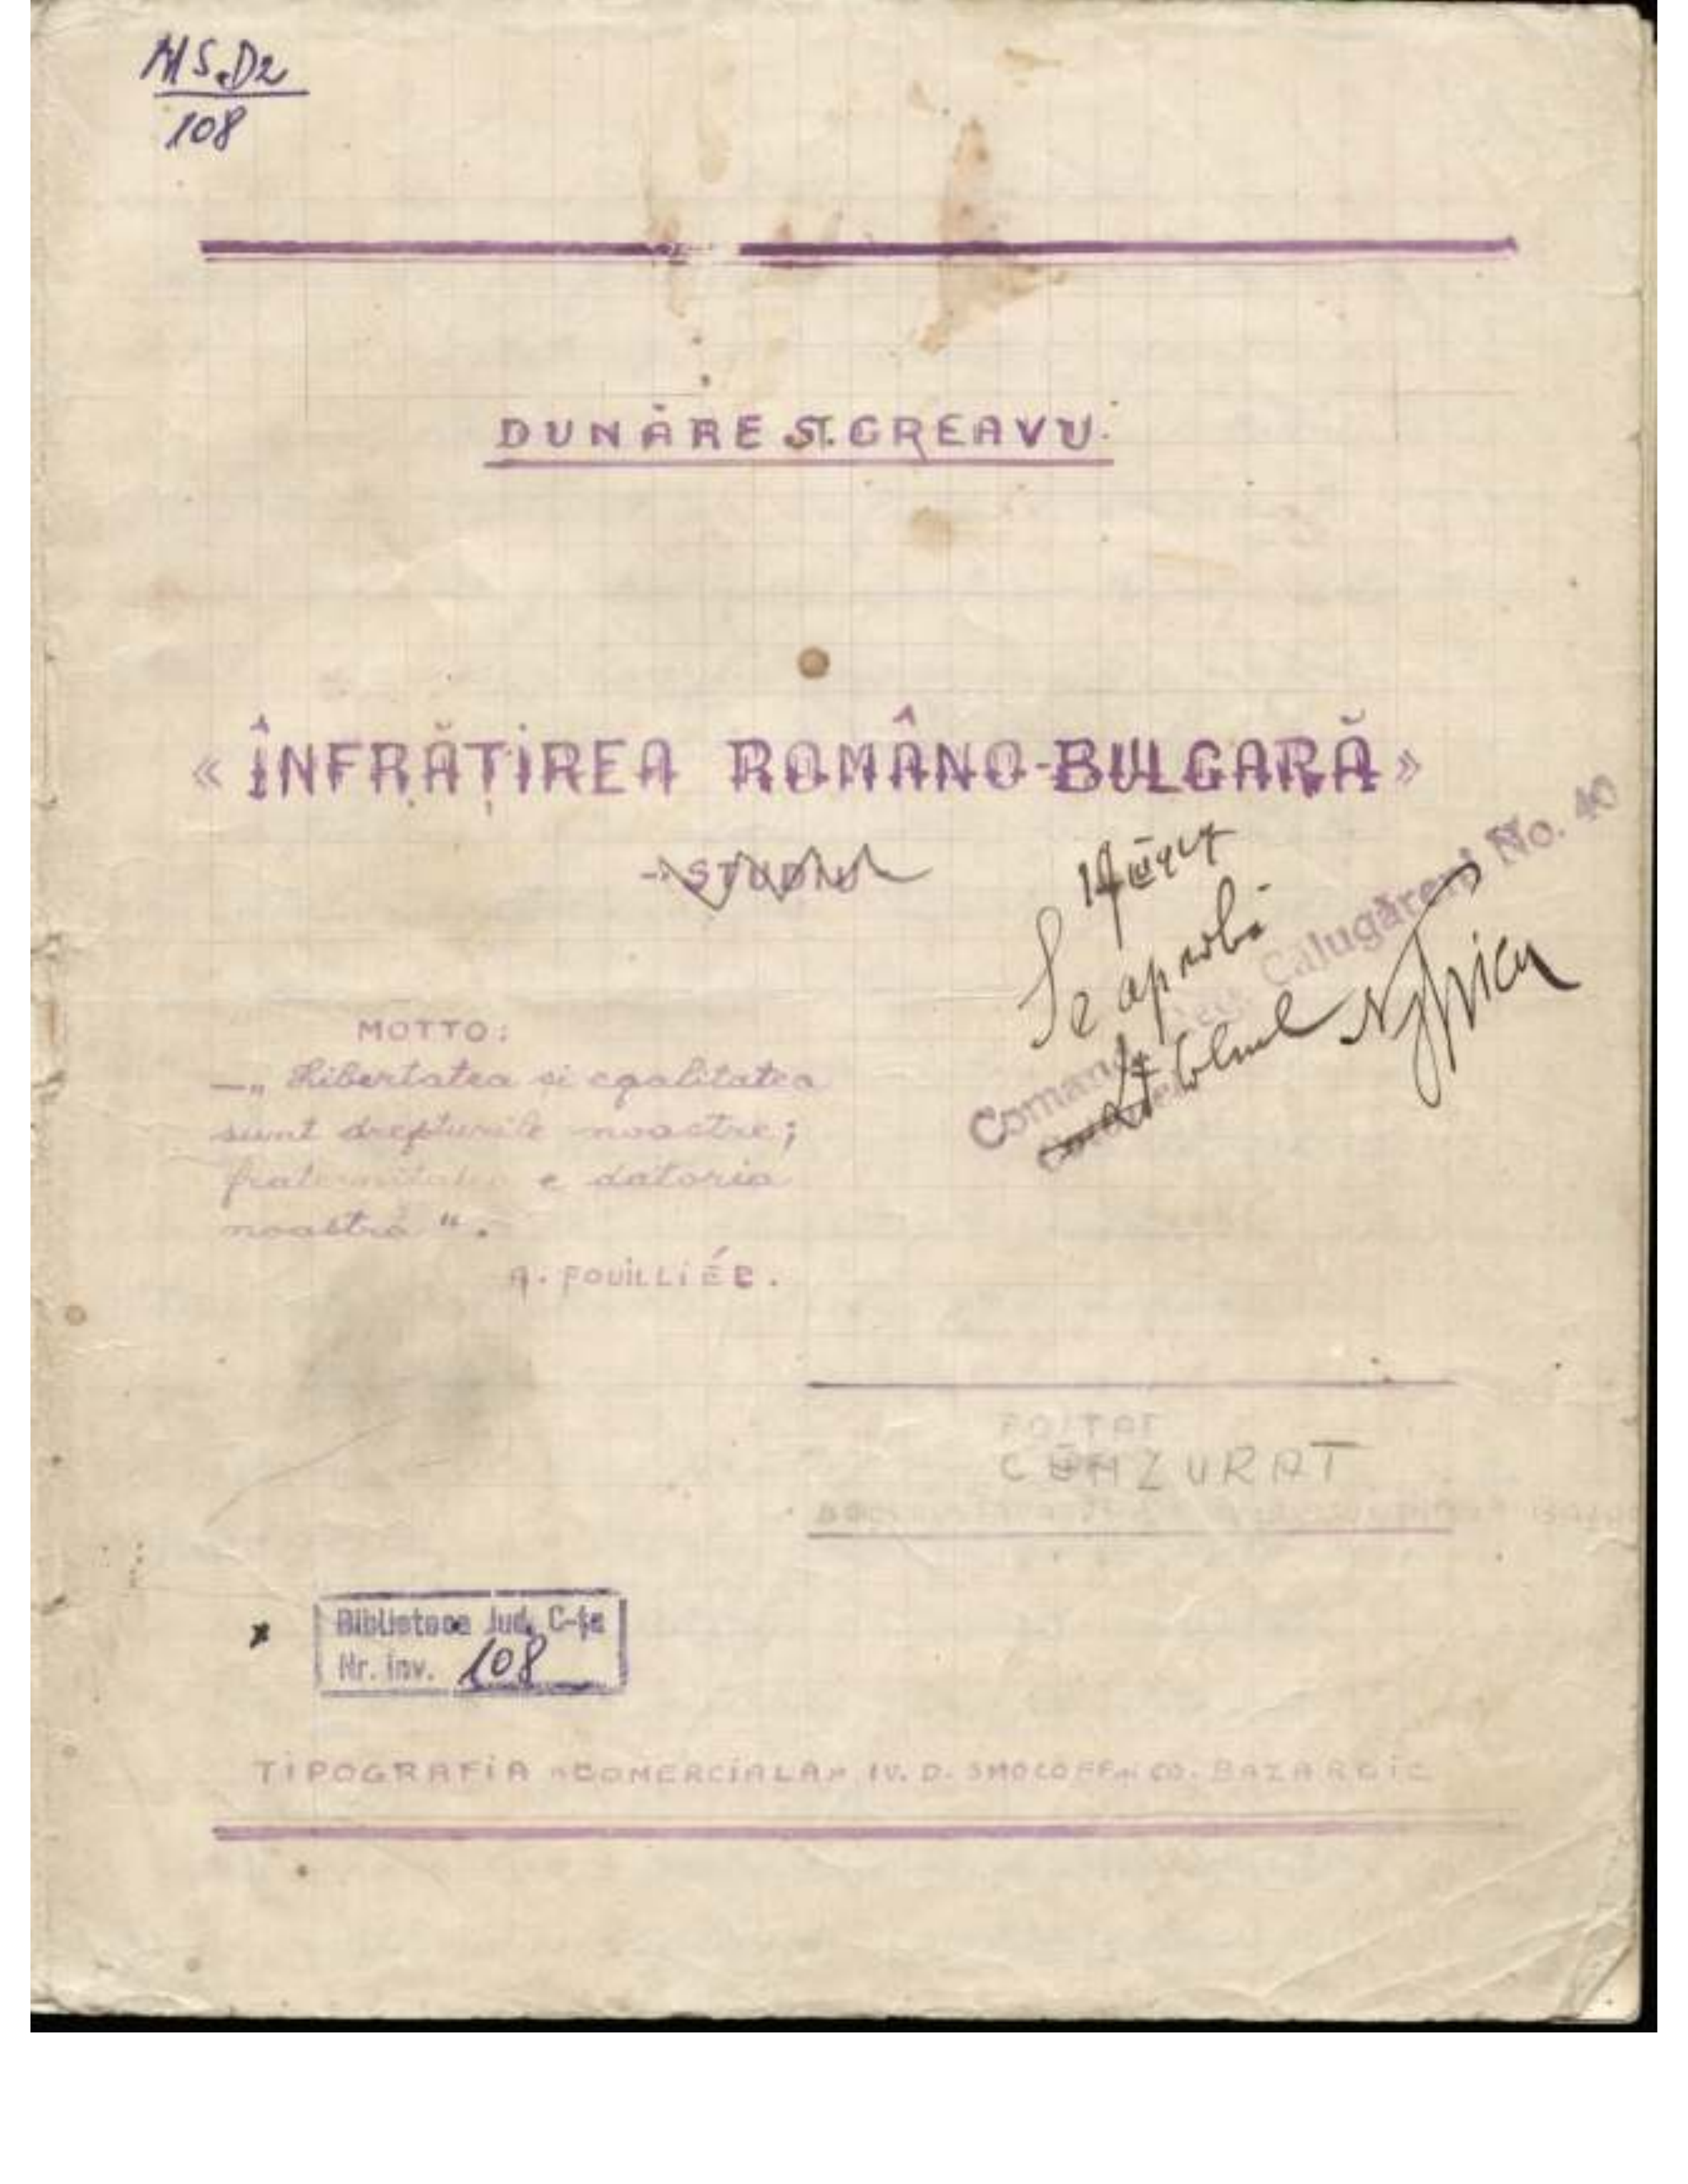 MS.D2
108
DUNĂRE ST. GREAVU.
« ÎNFRĂȚIREA ROMÂNO-BULGARĂ »
- STUDIU
Se aprobă
Calugăreni No. 40
MOTTO:
—„ Libertatea si egalitatea
sunt drepturile noastre;
fraternitatea e datoria
noastră “.
A. FOUILLIÉE.
CENZURAT
Biblioteca Jud. C-ța
Nr. inv. 108
TIPOGRAFIA «COMERCIALA» IV. D. SMOCOFF și CO. BAZARGIC